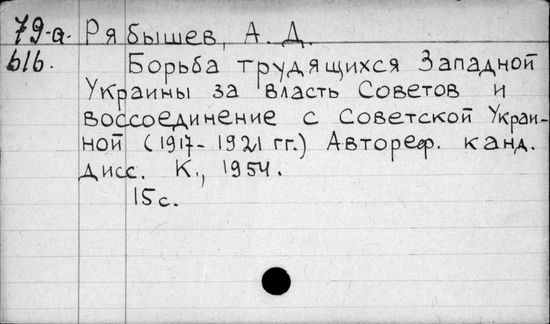 79-а. Рябышев, А. Д.
616. Борьба трудящихся Западной
Украины за власть Советов и
воссоединение с Советской Украи-
ной (1917-1921 гг.) Автореф. канд.
дисс. К., 1954.
15с.